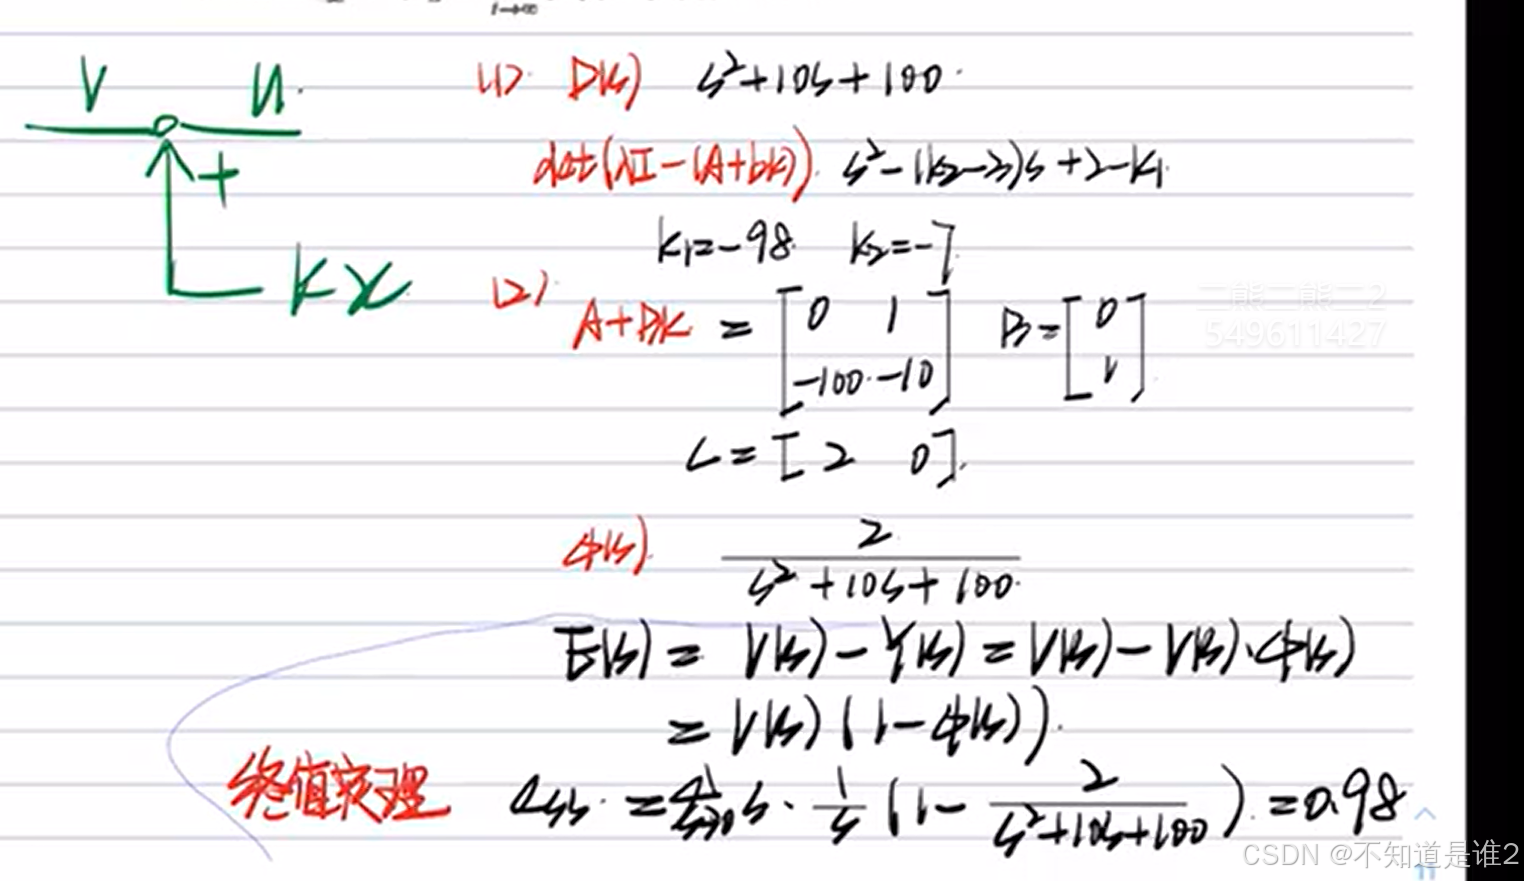 t→∞
V U
+
KX
(1) D(s) s²+10s+100
det(λI-(A+bk)) s²-(k₂-3)s+2-k₁
k₁=-98 k₂=-7
(2) A+BK = [0 1
-100 -10] B=[0
1]
C=[2 0]
φ(s) 2
s²+10s+100
E(s) = V(s)-Y(s) = V(s)-V(s)·φ(s)
= V(s)(1-φ(s))
终值定理 ess = lim s→0 s·1/s(1-2/(s²+10s+100)) = 0.98
二熊二熊二2
549611427
CSDN @不知道是谁2
11